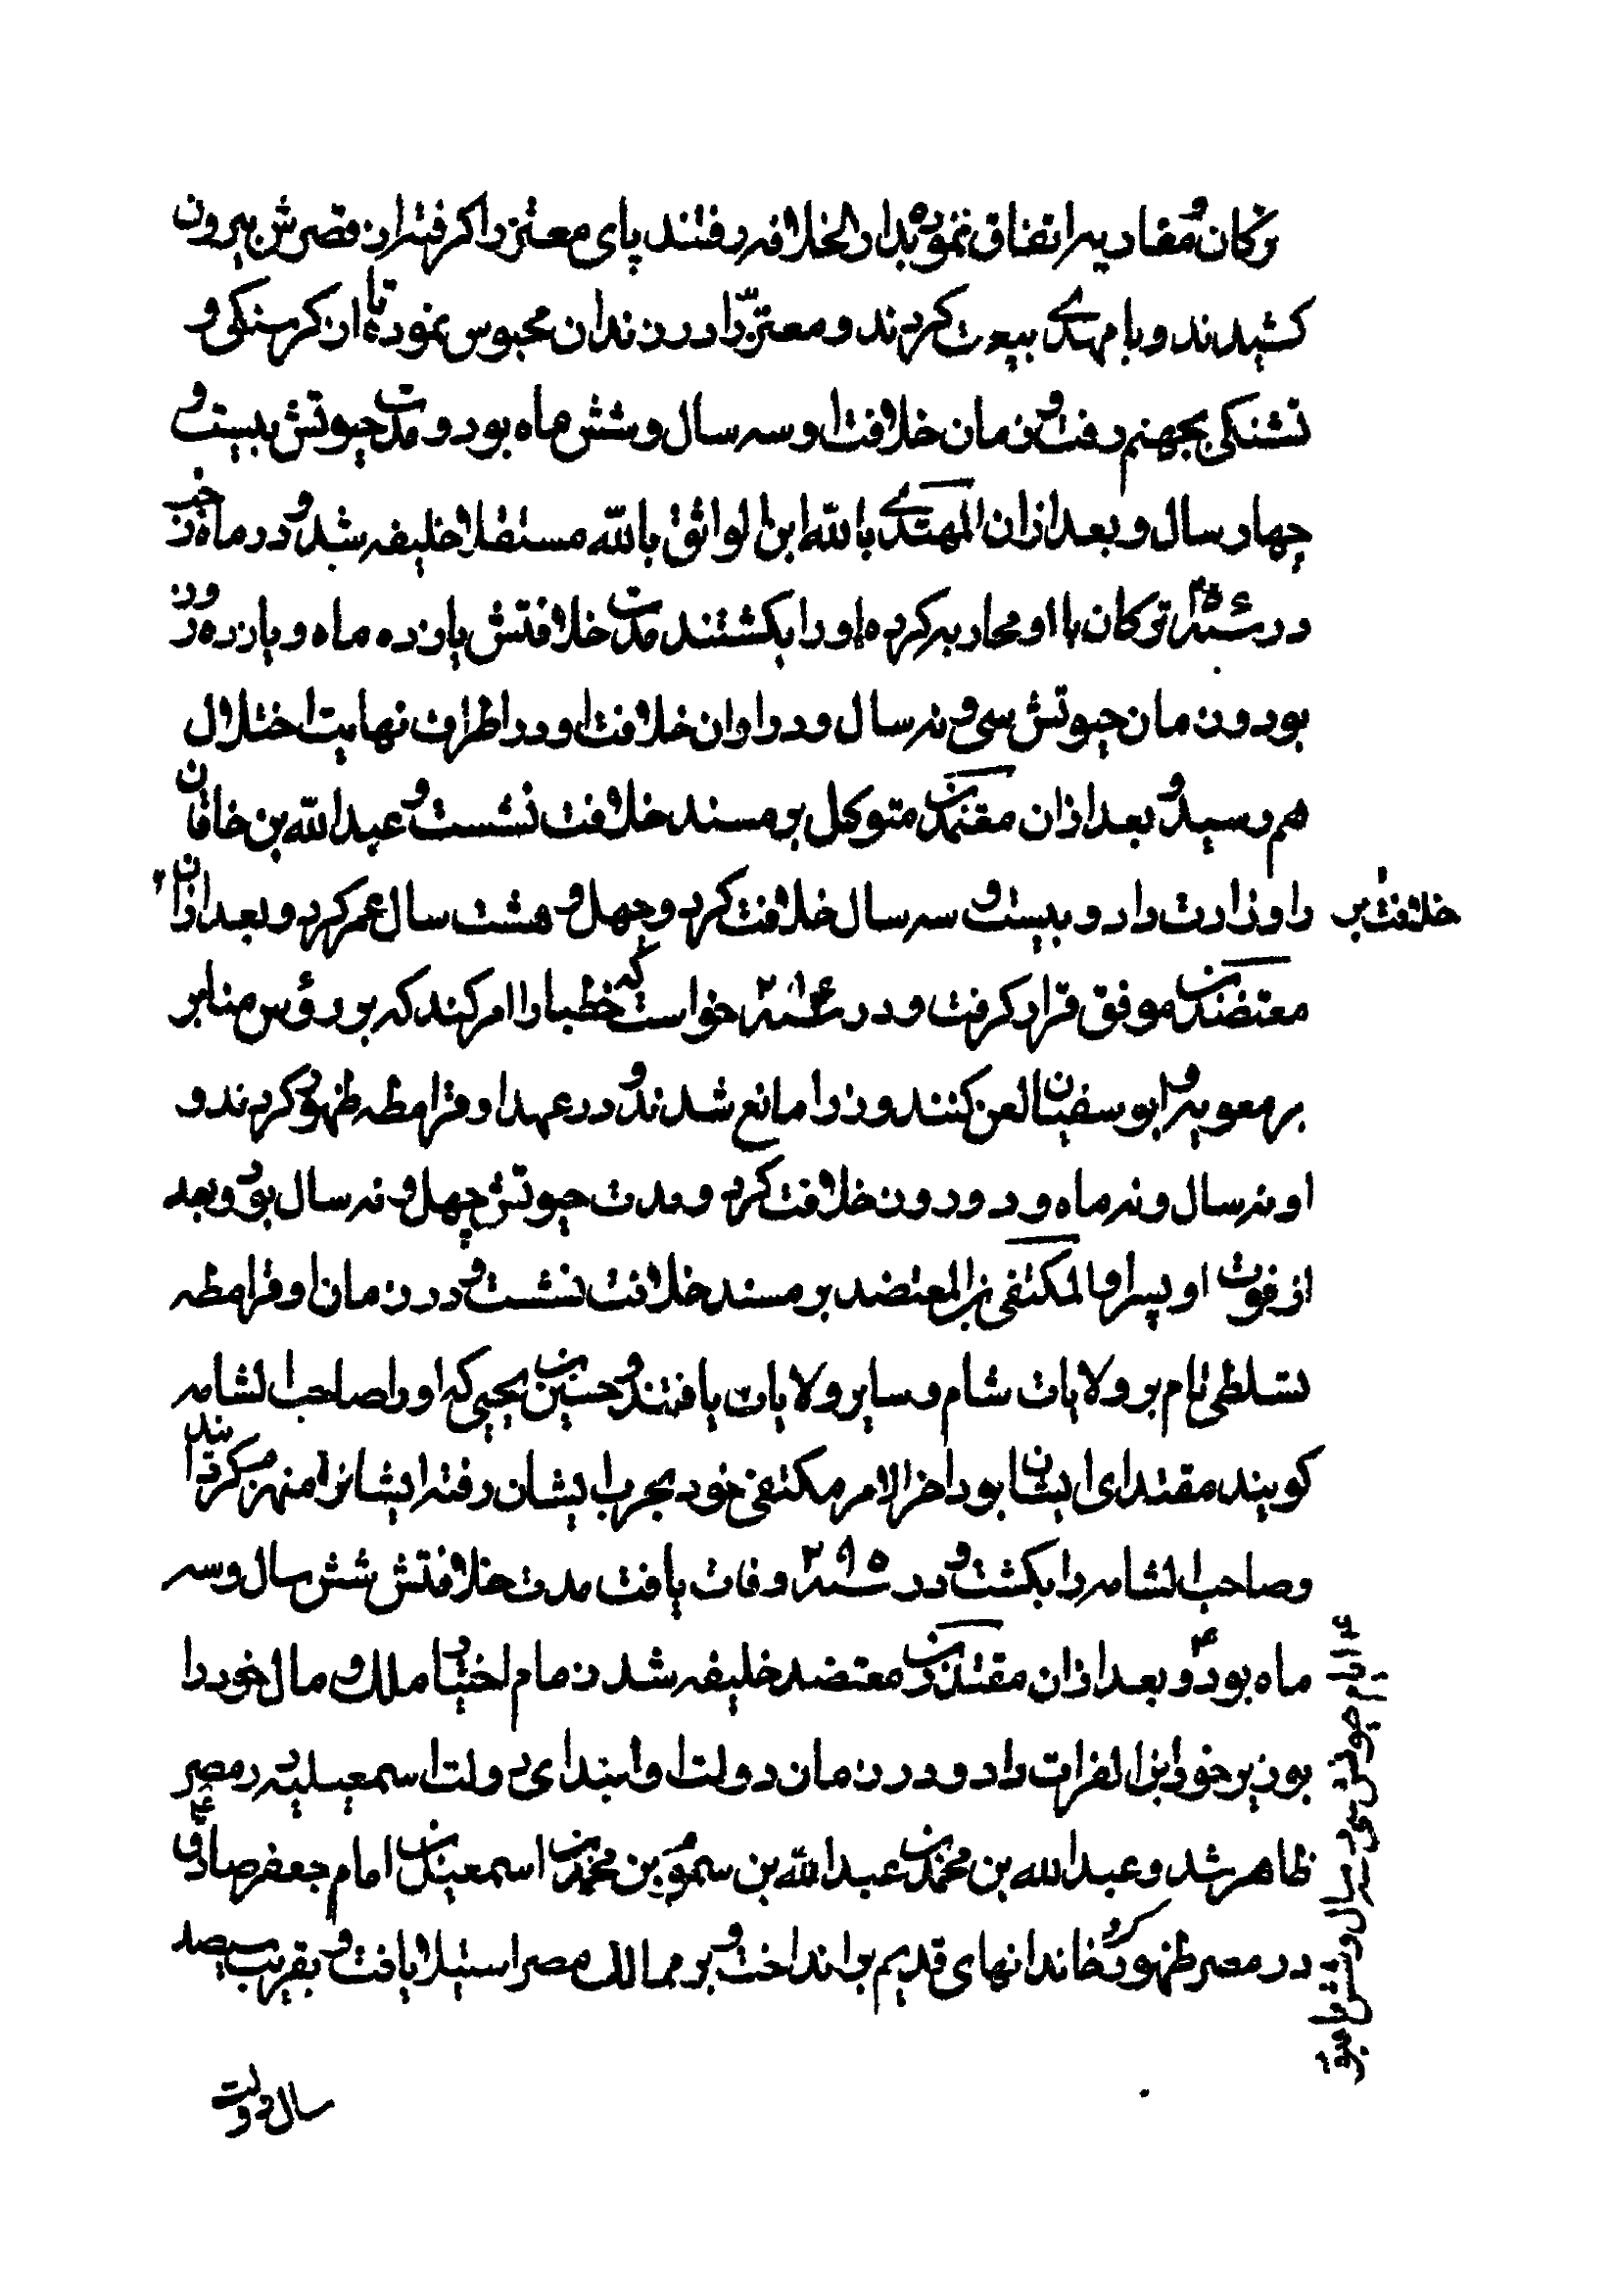 ترکان و مغاربه اتفاق نموده بدار الخلافه رفتند پای معتز را کرفته از قصرش بیرون
کشیدند و با مهتدی بیعت کردند و معتز را در زندان محبوس نمودند تا از کرسنکی و
تشنکی بجهنم رفت و زمان خلافت او سه سال و شش ماه بود و مدت حیوتش بیست و
چهار سال و بعد ازان المهتدی بالله ابن الواثق بالله مستقلا خلیفه شد و در ماه رجب
در سنه ۲۵۶ ترکان با او محاربه کرده او را بکشتند مدت خلافتش یازده ماه و یازده روز
بود و زمان حیوتش سی و نه سال و در اوان خلافت او در اطراف نهایت اختلال
هم رسید و بعد ازان معتمد بن متوکل بر مسند خلافت نشست و عبد الله بن خاقان
را وزارت داد و بیست و سه سال خلافت کرد و چهل و هشت سال عمر کرد و بعد ازان
خلافت بر
معتضد بن موفق قرار کرفت و در سنه ۲۸۴ خواست که خطبا را امر کند که بر رؤس منابر
بر معویه و ابو سفیان لعن کنند وزرا مانع شدند و در عهد او قرامطه ظهور کردند و
او نه سال و نه ماه و دو روز خلافت کرد و مدت حیوتش چهل و نه سال بود و بعد
از فوت او پسر او المکتفی بن المعتضد بر مسند خلافت نشست و در زمان او قرامطه
تسلطی تام بر ولایات شام و سایر ولایات یافتند و حسین بن یحیی که او را صاحب الشامه
کویند مقتدای ایشان بود اخر الامر مکتفی خود بحرب ایشان رفته ایشانرا منهزم کردانید
و صاحب الشامه را بکشت و در سنه ۲۹۵ وفات یافت مدت خلافتش شش سال و سه
ماه بود و بعد ازان مقتدر بن معتضد خلیفه شد زمام اختیار ملک و مال خود را
بوزیر خود ابن الفرات داد و در زمان دولت او ابتدای دولت اسمعیلیه در مصر
ظاهر شد و عبد الله بن محمد بن عبد الله بن بن محمد بن اسمعیل بن امام جعفر صادق ع
در مصر ظهور کرد خاندانهای قدیم بر انداخت و بر ممالک مصر استیلا یافت و بقریب سیصد
سال دولت
ایام حیوتش سی و سال و شش ماه بود